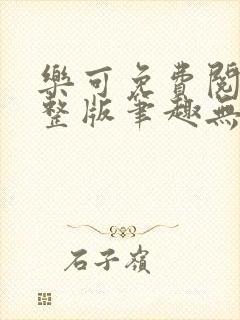 樂可免費閱
整版筆趣無
石子嶺